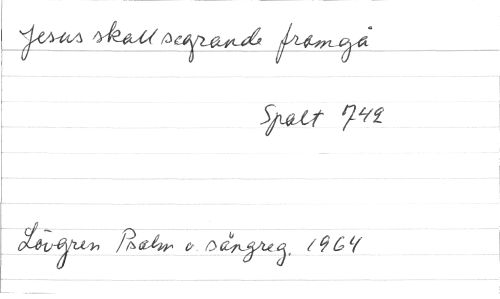 Jesus skall segrande framgå
Spalt 742
Lövgren Psalm o. sångreg. 1964